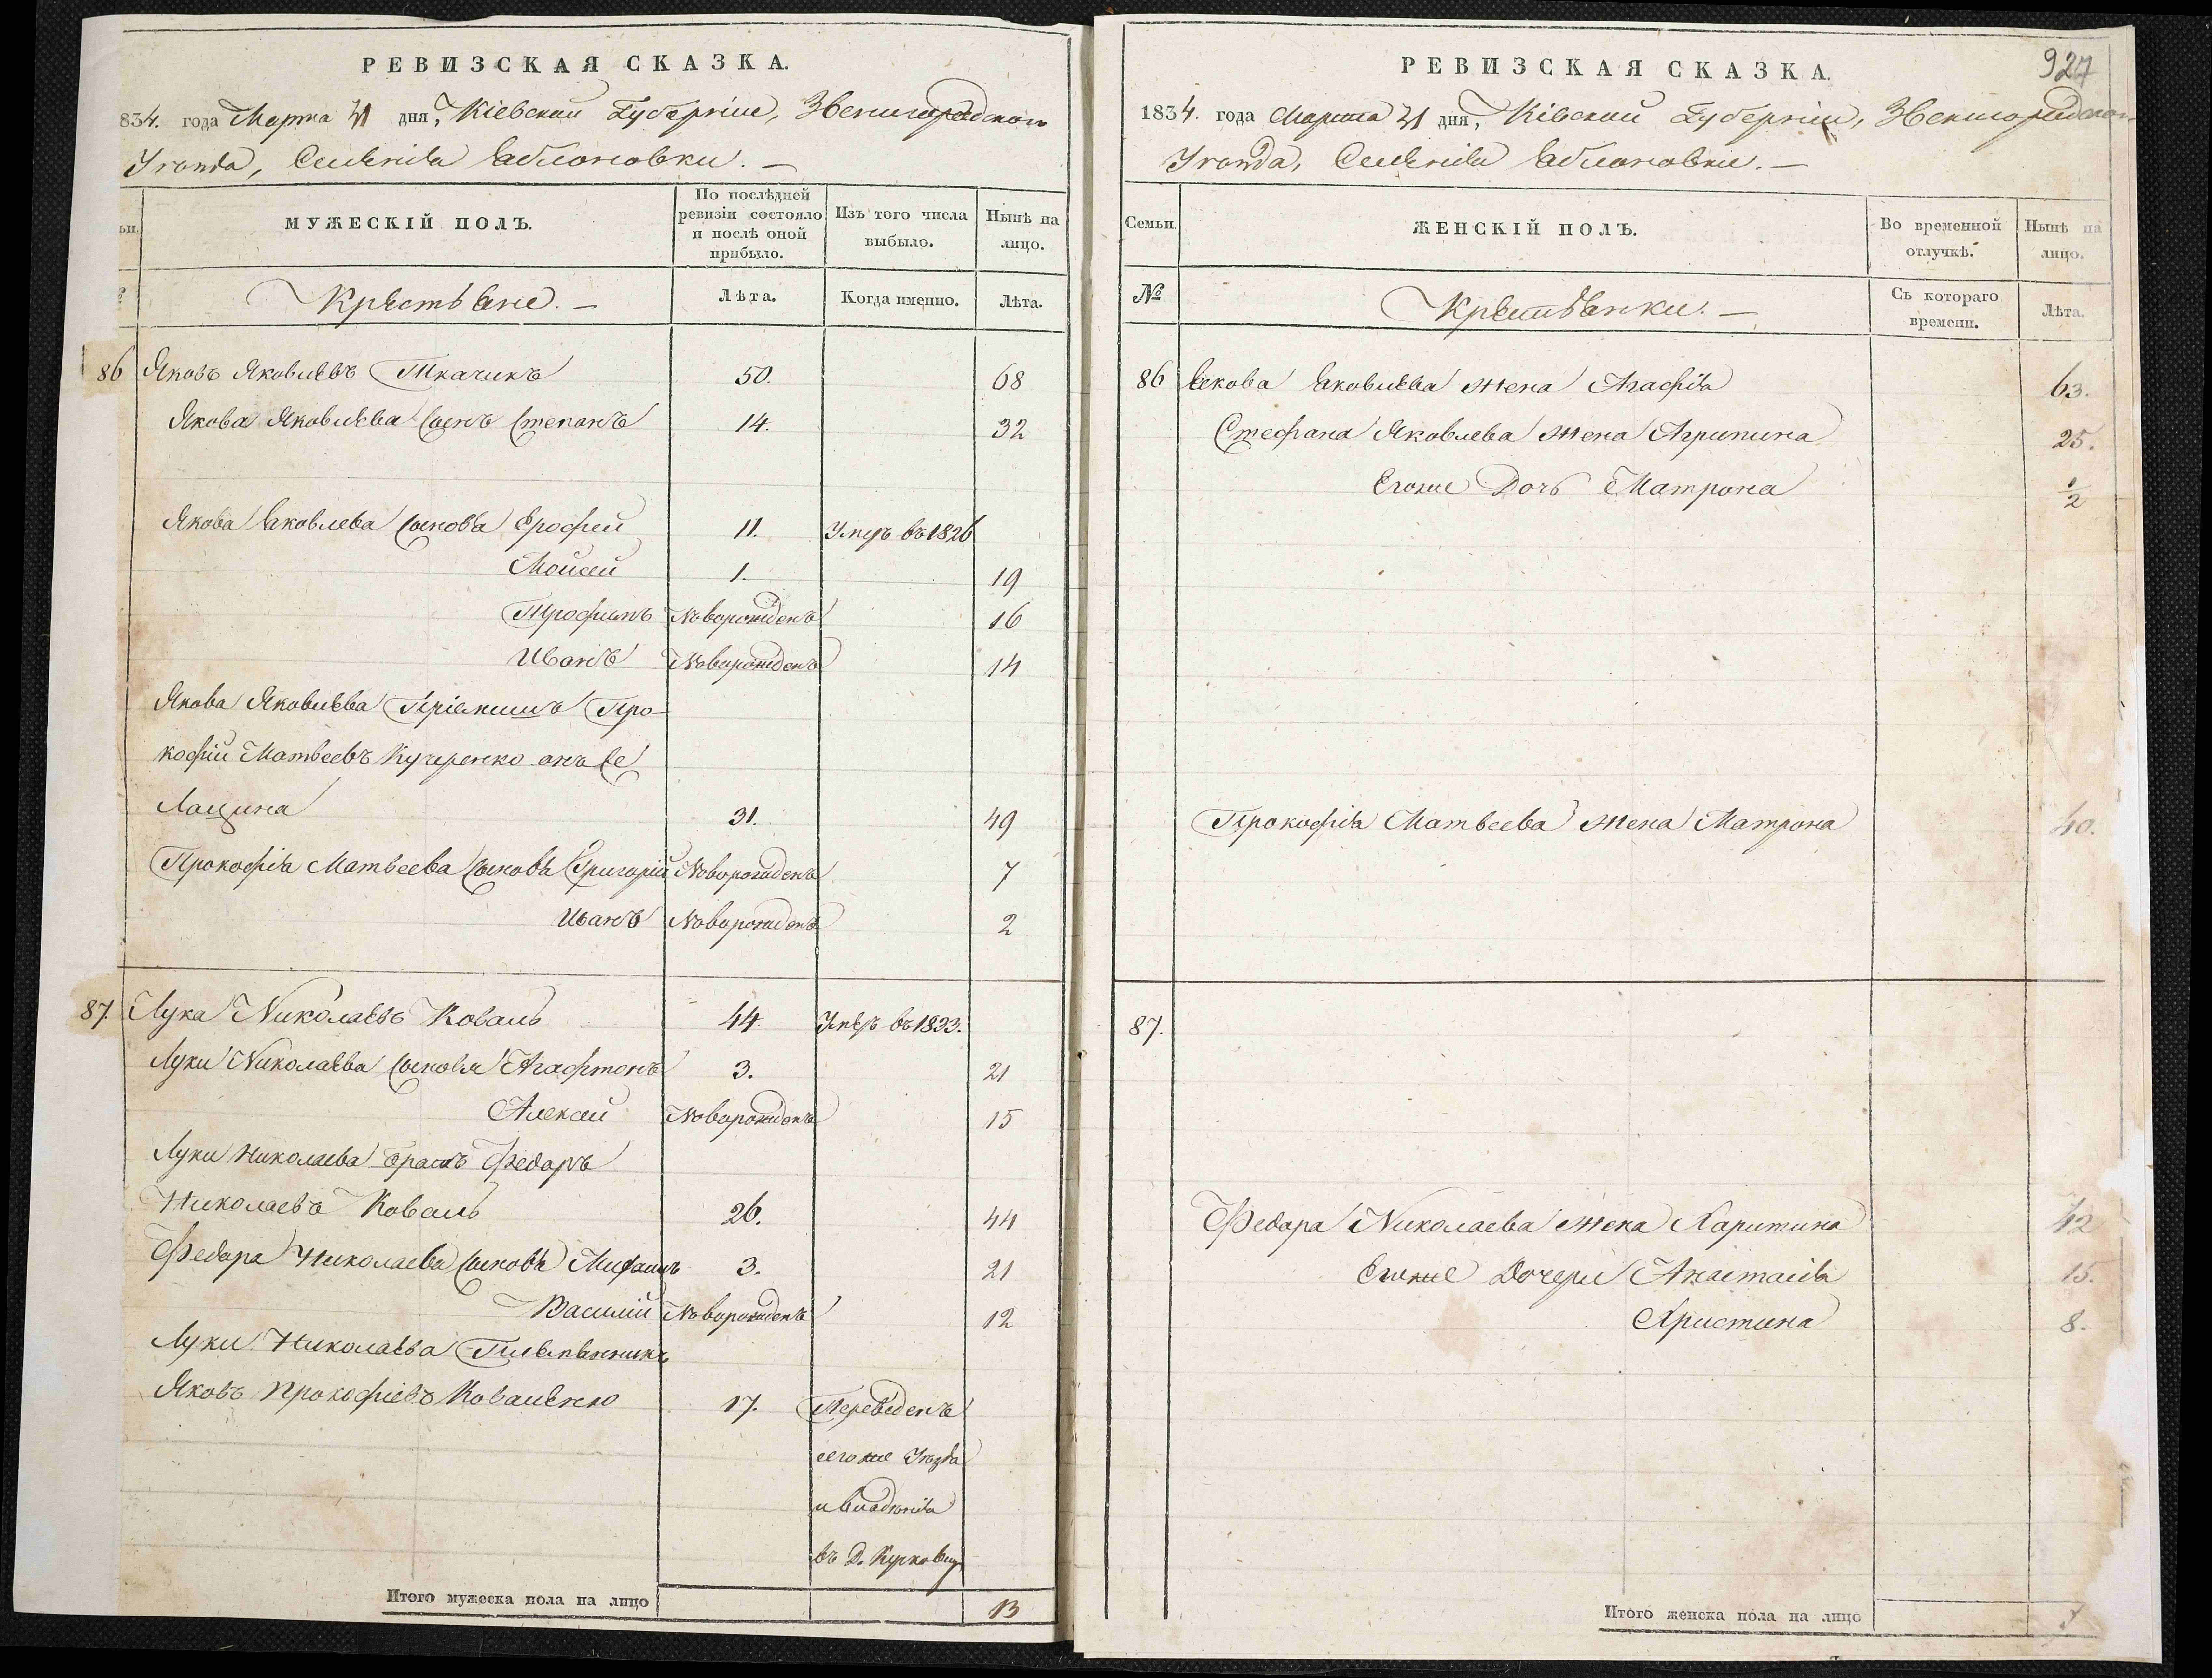 РЕВИЗСКАЯ СКАЗКА.
834. года Марта 31 дня, Кіевской Губерніи, Звенигородскаго
Уѣзда, Селенія Яблоновки. —
ьи.
МУЖЕСКІЙ ПОЛЪ.
По послѣдней ревизіи состояло и послѣ оной прибыло.
Изъ того числа выбыло.
Нынѣ на лицо.
Крестьяне. —
Лѣта.
Когда именно.
Лѣта.
86 Яковъ Яковлевъ Ткачикъ 50. 68
Якова Яковлева Сынъ Степанъ 14. 32
Якова Яковлева Сыновья Ерофей 11. Умеръ въ 1826
Мойсей 1. 19
Трофимъ Новорожденъ 16
Иванъ Новорожденъ 14
Якова Яковлева Пріемышъ Про-
кофій Матвеевъ Кучеренко онъ же
Лащина 31. 49
Прокофія Матвеева Сыновья Григорій Новорожденъ 7
Иванъ Новорожденъ 2
87. Лука Николаевъ Коваль 44. Умеръ въ 1833.
Луки Николаева Сыновья Агафтонъ 3. 21
Алексей Новорожденъ 15
Луки Николаева братъ Федоръ
Николаевъ Коваль 26. 44
Федора Николаева Сыновья Михаилъ 3. 21
Василій Новорожденъ 12
Луки Николаева Племянникъ
Яковъ Прокофіевъ Коваленко 17. Переведенъ
сегоже Уѣзда
и владѣнія
въ Д.
Итого мужеска пола на лицо 13
927
РЕВИЗСКАЯ СКАЗКА.
1834. года Марта 31 дня, Кіевской Губерніи, Звенигородскаго
Уѣзда, Селенія Яблоновки. —
Семьи.
ЖЕНСКІЙ ПОЛЪ.
Во временной отлучкѣ.
Нынѣ на лицо.
№
Крестьянки. —
Съ котораго времени.
Лѣта.
86 Якова Яковлева жена Агафія 63.
Стефана Яковлева жена Агрипина 25.
Егоже Дочь Матрона 1/2
Прокофія Матвеева жена Матрона 40.
87.
Федора Николаева жена Харитина 42
Егоже Дочери Анастасія 15.
Христина 8.
Итого женска пола на лицо